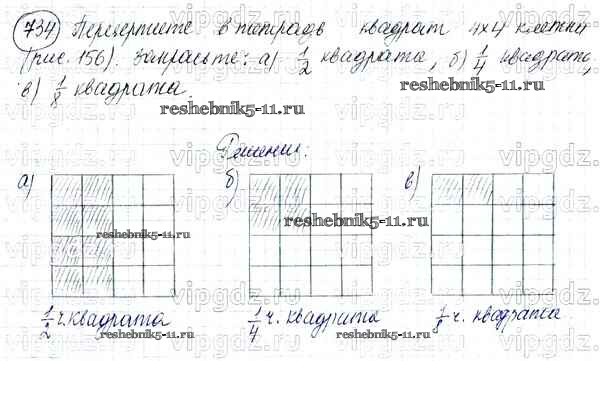 734 Перечертите в тетрадь квадрат 4х4 клетки
(рис. 156). Закрасьте: а) 1/2 квадрата, б) 1/4 квадрата,
в) 1/8 квадрата.
reshebnik5-11.ru
vipgdz.ru
Решение:
а) б) в)
reshebnik5-11.ru
reshebnik5-11.ru
1/2 ч. квадрата 1/4 ч. квадрата 1/8 ч. квадрата
reshebnik5-11.ru reshebnik5-11.ru